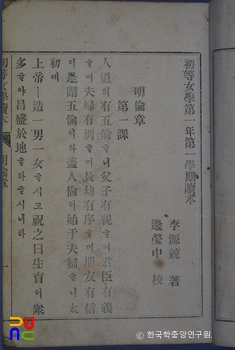 初等女學第一年第一學期讀本
李源兢 著
邊瑩中 校
明倫章
第一課
人道이有五倫ᄒᆞ니父子有親ᄒᆞ며君臣有義
ᄒᆞ며夫婦有別ᄒᆞ며長幼有序ᄒᆞ며朋友有信
이是謂五倫이라盖人倫이始于夫婦ᄒᆞ니太
初에
上帝ㅣ造一男一女ᄒᆞ시고祝之曰生育이衆
多ᄒᆞ야昌盛於地ᄒᆞ라ᄒᆞ시니라
初等女學讀本 明倫章 一
ⓒ한국학중앙연구원